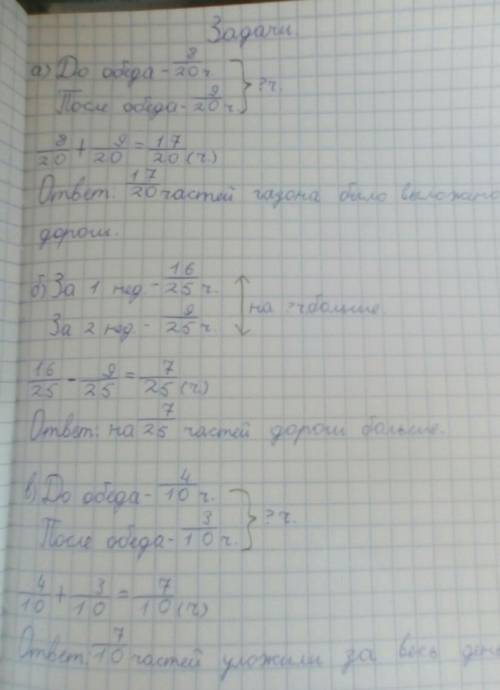 Задачи.
а) До обеда - 8/20 ч. } ? ч.
После обеда - 9/20 ч.
8/20 + 9/20 = 17/20 (ч)
Ответ: 17/20 частей газона было выложено
дороги.
б) За 1 нед. - 16/25 ч.
За 2 нед. - 9/25 ч. на ? ч больше.
16/25 - 9/25 = 7/25 (ч)
Ответ: на 7/25 частей дороги больше.
в) До обеда - 4/10 ч. } ? ч.
После обеда - 3/10 ч.
4/10 + 3/10 = 7/10 (ч)
Ответ: 7/10 частей уложили за весь день